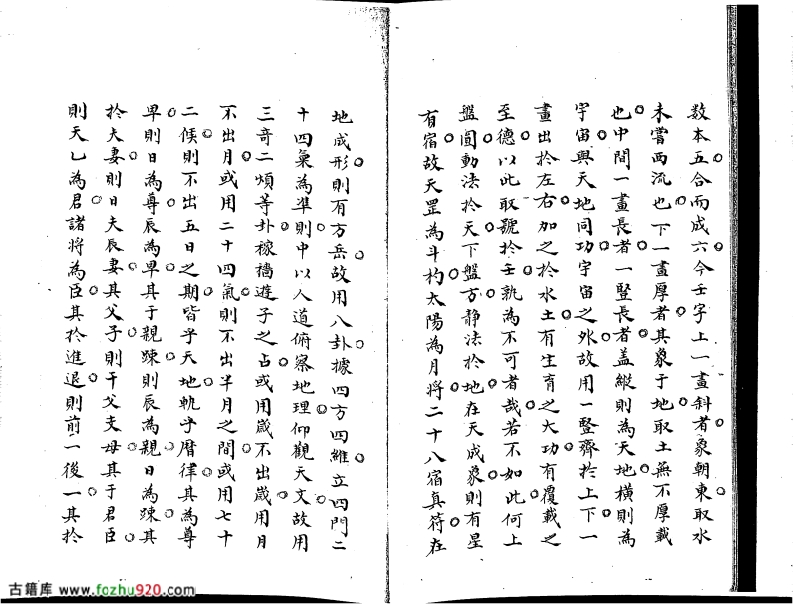 数本五合而成六今壬字上一畫斜者象朝東取水
未嘗西流也下一畫厚者其象于地取土無不厚載
也中間一畫長者一豎長者盖縱則為天地橫則為
宇宙與天地同功宇宙之外故用一豎齊於上下一
畫出於左右加之於水土有生育之大功有覆載之
至德以此取號於壬孰為不可者哉若不如此何上
盤圓動法於天下盤方静法於地在天成象則有星
有宿故天罡為斗杓太陽為月將二十八宿真符在
地成形則有方岳故用八卦據四方四維立四門二
十四氣為準則中以人道俯察地理仰觀天文故用
三奇二煩等卦稼穡遊子之占或用歲不出歲用月
不出月或用二十四氣則不出半月之間或用七十
二候則不出五日之期皆乎天地軌乎曆律其為尊
卑則日為尊辰為卑其于親踈則辰為親日為踈其
於夫妻則日夫辰妻其父子則干父支母其于君臣
則天乙為君諸將為臣其於進退則前一後一其於
古籍库 www.fozhu920.com